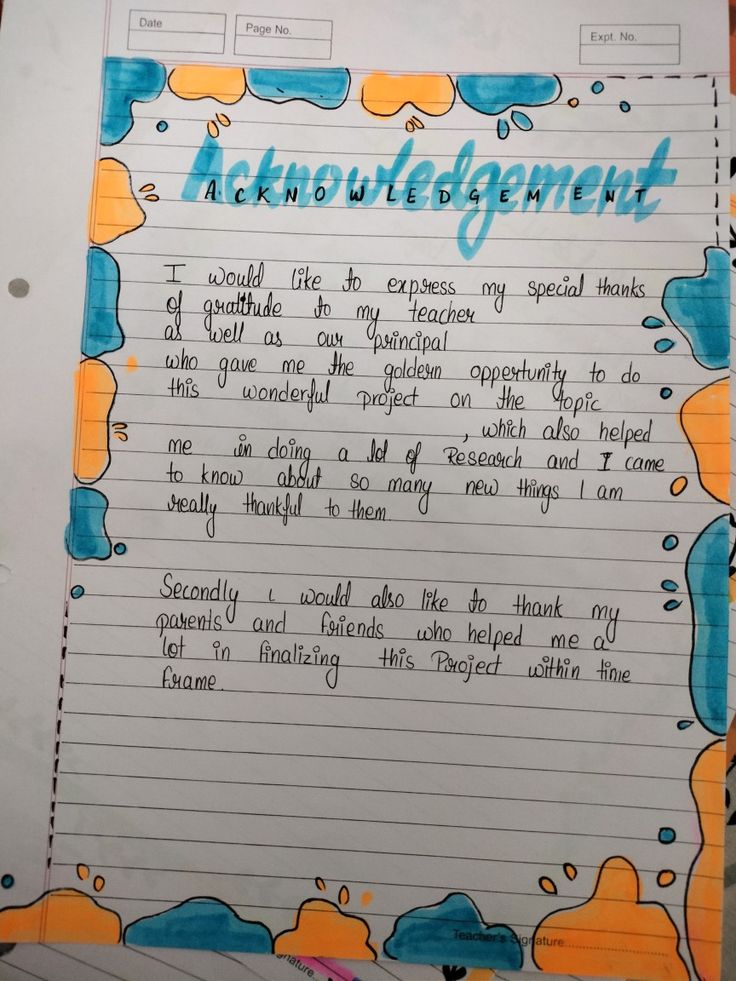 Date
Page No.
Expt. No.
Acknowledgement
ACKNOWLEDGEMENT
I would like to express my special thanks
of gratitude to my teacher
as well as our principal
who gave me the goldern opportunity to do
this wonderful project on the topic
, which also helped
me in doing a lot of Research and I came
to know about so many new things I am
really thankful to them.
Secondly i would also like to thank my
parents and friends who helped me a
lot in finalizing this Project within time
frame.
Teacher's Signature
nature